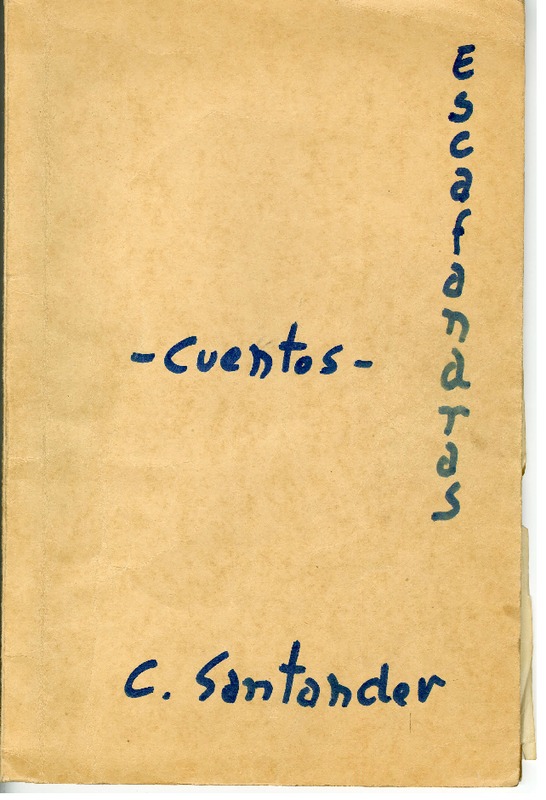 Escafandras
-Cuentos-
C. Santander